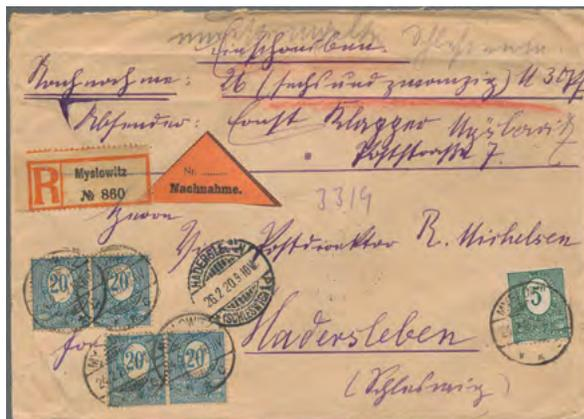 Einschreiben.
Nachnahme: 26 (sechs und zwanzig) M 30 Pf
Absender: Ernst Klapper Myslowitz
Poststraße 7.
R Myslowitz
№ 860
Nr.
Nachnahme.
3319
Herrn
Postdirektor R. Michelsen
HADERSLEBEN
26.2.20.9-10V.
(SCHLESWIG)
20 20
20 20
5
Hadersleben
(Schleswig)